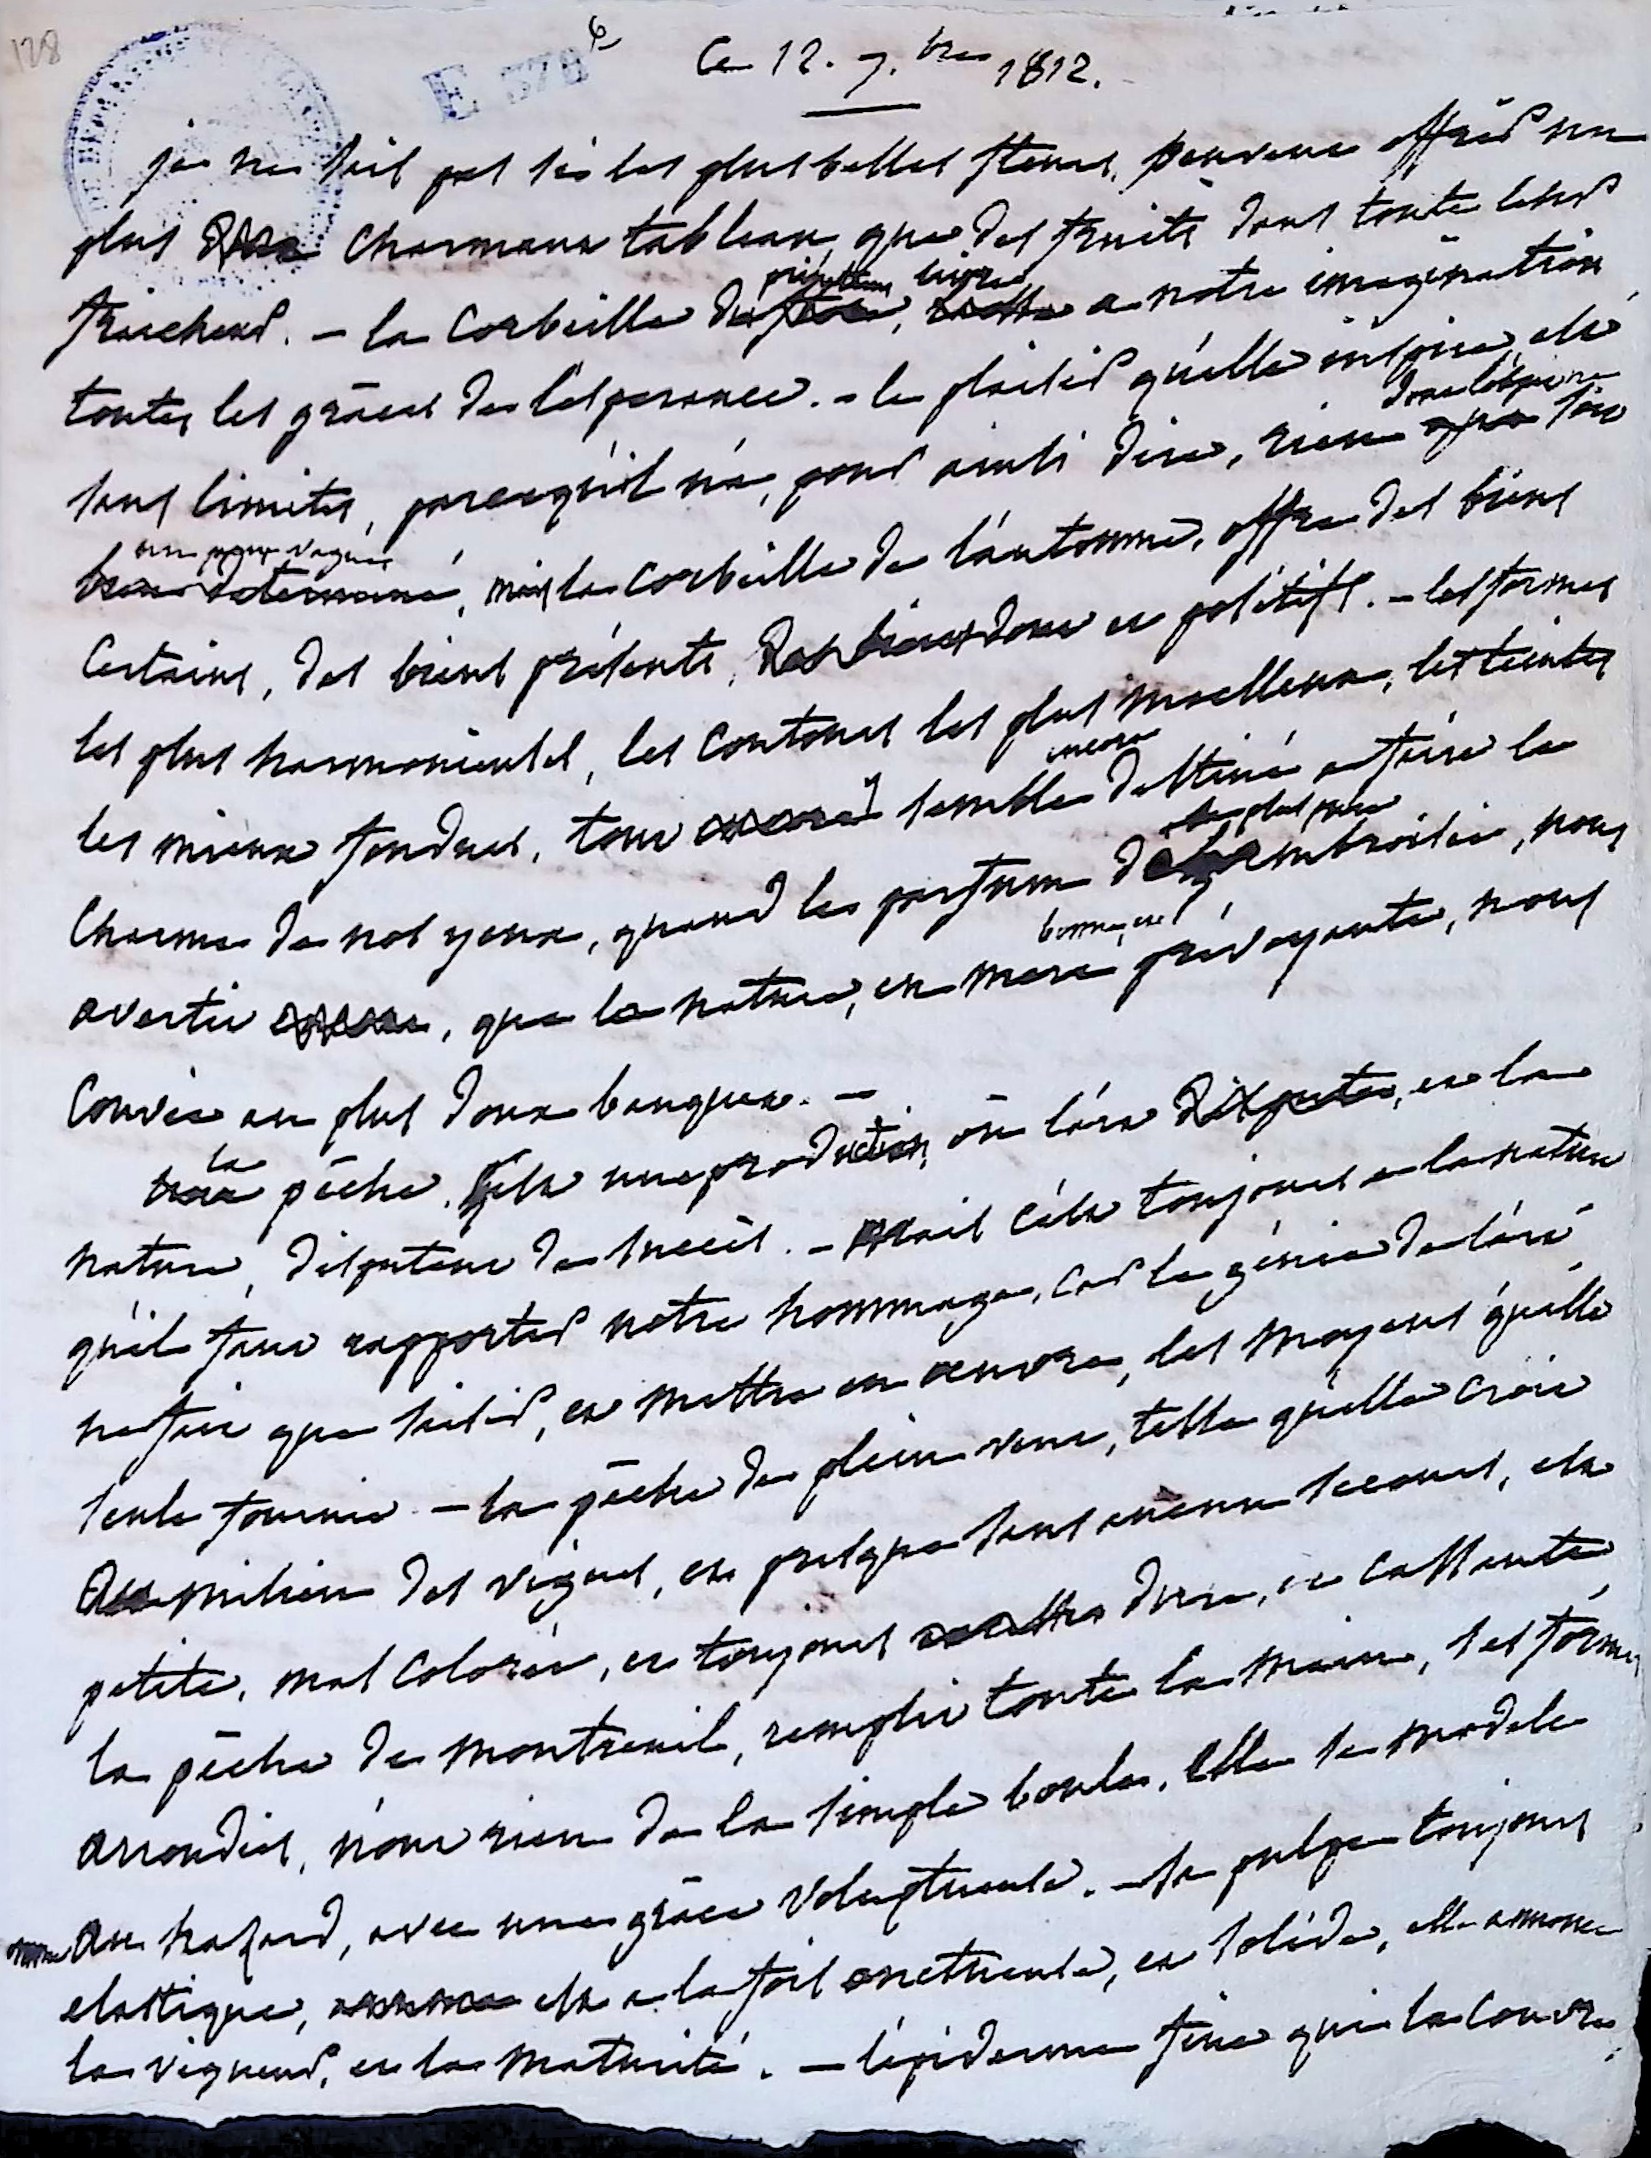 128
E 378 6
Ce 12. 7.bre 1812.
je ne sais pas si les plus belles fleurs, peuvent offrir un
plus charmant tableau, que des fruits dans toute leur
fraicheur. - la corbeille du printems livre a notre imagination
toutes les grâces de l'esperance. - le plaisir qu'elle inspire, est
sans limites, parcequ'il n'a, pour ainsi dire, rien que
determiné, mais la corbeille de l'automne, offre des biens
certains, des biens présents, des biens doux et positifs. - les formes
les plus harmonieuses, les contours les plus moelleux, les teintes
les mieux fondues, tout semble encore destiné a faire le
charme de nos yeux, quand le parfum le plus pur d'ambroisie, nous
avertit, que la nature, en bonne, et mere prévoyante, nous
convie au plus doux banquet. -
la pêche, est une production, où l'art dispute, et la
nature, disputent de succès. - mais c'est toujours a la nature
qu'il faut rapporter notre hommage, car le génie de l'art
ne fait que saisir, et mettre en œuvre, les moyens qu'elle
seule fournit - la pêche de plein vent, telle qu'elle croit
au milieu des vignes, et presque sans aucun secours, est
petite, mal colorée, et toujours dure, et cassante,
la pêche de montreuil, remplit toute la main, ses formes
arrondies, n'ont rien de la simple boule, elle se modele
comme au hazard, avec une grâce voluptueuse. - sa pulpe toujours
elastique, est a la fois onctueuse, et solide, elle annonce
la vigueur, et la maturité. - l'épiderme fine qui la couvre,